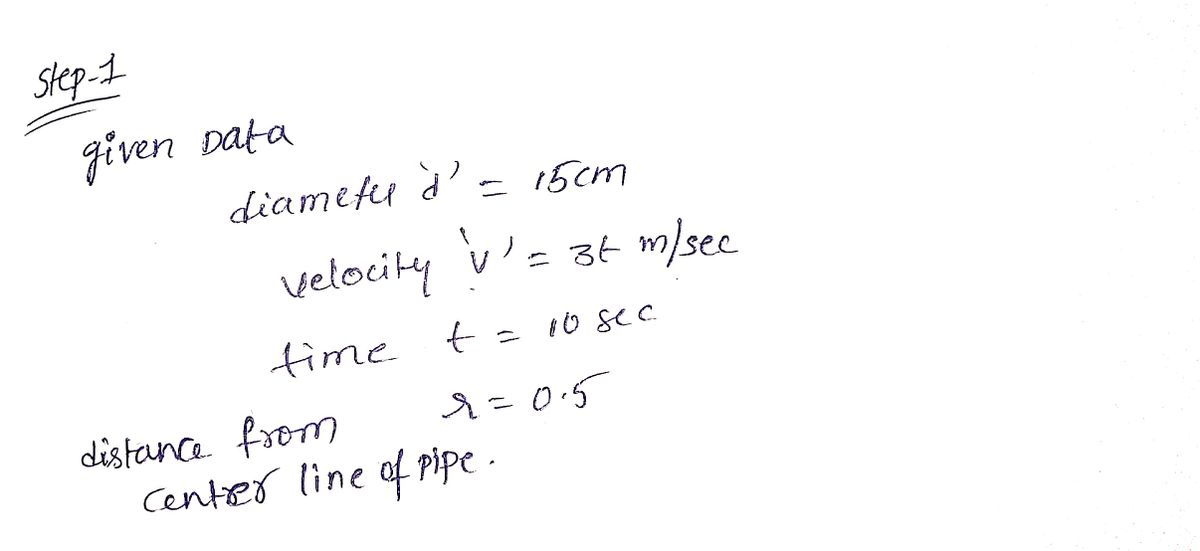 Step-1
given Data
diameter 'd' = 15cm
velocity 'v' = 3t m/sec
time t = 10 sec
r = 0.5
distance from
center line of pipe.